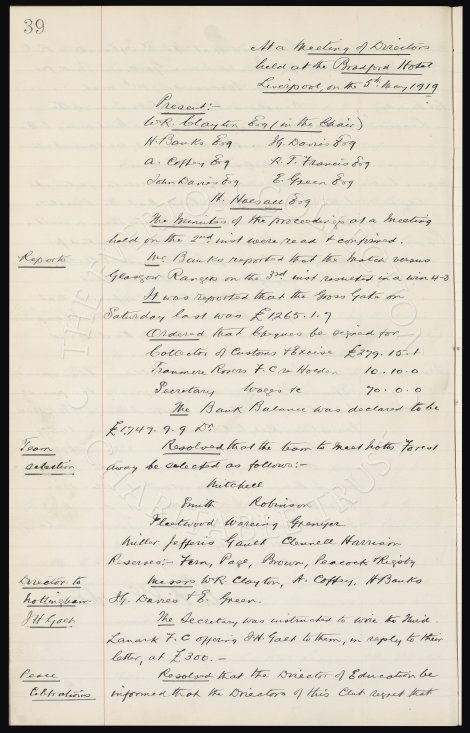 39
At a Meeting of Directors
held at the Bradford Hotel
Liverpool, on the 5th May 1919
Present:-
W.R. Clayton Esq (in the Chair)
H. Banks Esq J.G. Davies Esq
A. Coffey Esq R.T. Francis Esq
John Davies Esq E. Green Esq
H. Halsall Esq
The Minutes of the proceedings at a Meeting
held on the 2nd inst were read & confirmed.
Reports Mr. Banks reported that the Match versus
Glasgow Rangers on the 3rd inst resulted in a win 4-3
It was reported that the Gross Gate on
Saturday last was £1265.1.7
Ordered that Cheques be signed for
Collector of Customs & Excise £279.15.1
Tranmere Rovers F.C. re Holden 10.10.0
Secretary Wages &c 70.0.0
The Bank Balance was declared to be
£1,747.9.9 Dr
Team Resolved that the team to meet Notts Forest
selection away be selected as follows:-
Mitchell
Smith Robinson
Fleetwood Wareing Grenyer
Miller Jefferis Gault Clennell Harrison
Reserves:- Fern, Page, Brown, Peacock & Rigby
Director to Messrs W.R. Clayton, A. Coffey, H. Banks
Nottingham J.G. Davies & E. Green.
J.H. Galt The Secretary was instructed to write the Third
Lanark F.C. offering J.H. Galt to them, in reply to their
letter, at £300.-
Peace Resolved that the Director of Education be
Celebrations informed that the Directors of this Club regret that
THE EVERTON COLLECTION
CHARITABLE TRUST